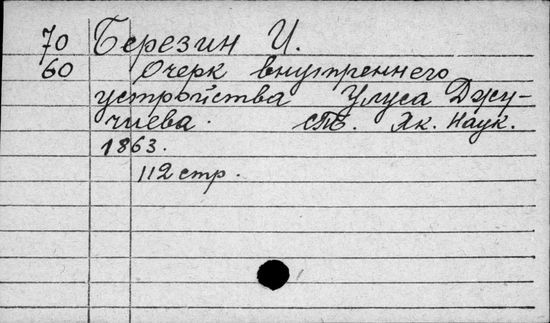 70 Березин И.
60 Очерк внутреннего
устройства Улуса Джу-
чиева. СПб. Як. Наук.
1863.
112 стр.